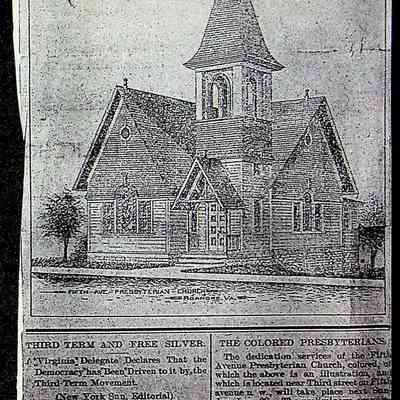 FIFTH-AVE-PRESBYTERIAN-CHURCH
ROANOKE, VA.
THIRD TERM AND FREE SILVER.
A "Virginia" Delegate Declares That the
Democracy has Been Driven to it by, the
Third-Term Movement.
(New York Sun, Editorial)
THE COLORED PRESBYTERIANS.
The dedication services of the Fifth
Avenue Presbyterian Church, colored, of
which the above is an illustration, and
which is located near Third street on Fifth
avenue n. w., will take place next Sun-